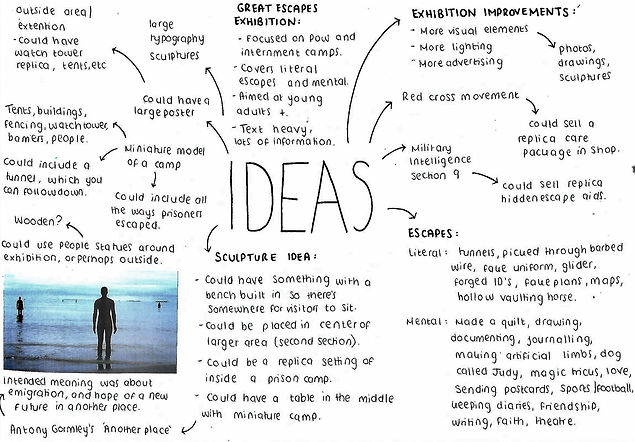 outside area/
extention
- Could have
watch tower
replica, tents, etc
large
typography
sculptures
Could have a
large poster
Tents, buildings,
fencing, watchtower,
barriers, people.
Miniature model
of a camp
Could include a
tunnel, which you
can follow down.
Could include all
the ways prisoners
escaped.
Wooden?
Could use people statues around
exhibition, or perhaps outside.
Intended meaning was about
emigration, and hope of a new
future in another place.
Antony Gormley's 'Another place'
GREAT ESCAPES
EXHIBITION:
- Focused on POW and
internment camps.
- Covers literal
escapes and mental.
- Aimed at young
adults +.
- Text heavy,
lots of information.
IDEAS
SCULPTURE IDEA:
- Could have something with a
bench built in so there's
somewhere for visitor to sit.
- Could be placed in center of
larger area (second section).
- Could be a replica setting of
inside a prison camp.
- Could have a table in the middle
with miniature camp.
EXHIBITION IMPROVEMENTS:
- More visual elements
- More lighting
- More advertising
photos,
drawings,
sculptures
Red cross movement
could sell a
replica care
package in shop.
Military
Intelligence
section 9
could sell replica
hidden escape aids.
ESCAPES:
Literal: tunnels, picked through barbed
wire, fake uniform, glider,
forged ID's, fake plans, maps,
hollow vaulting horse.
Mental: Made a quilt, drawing,
documenting, journalling,
making artificial limbs, dog
called Judy, magic tricks, love,
sending postcards, sports/football,
keeping diaries, friendship,
writing, faith, theatre.